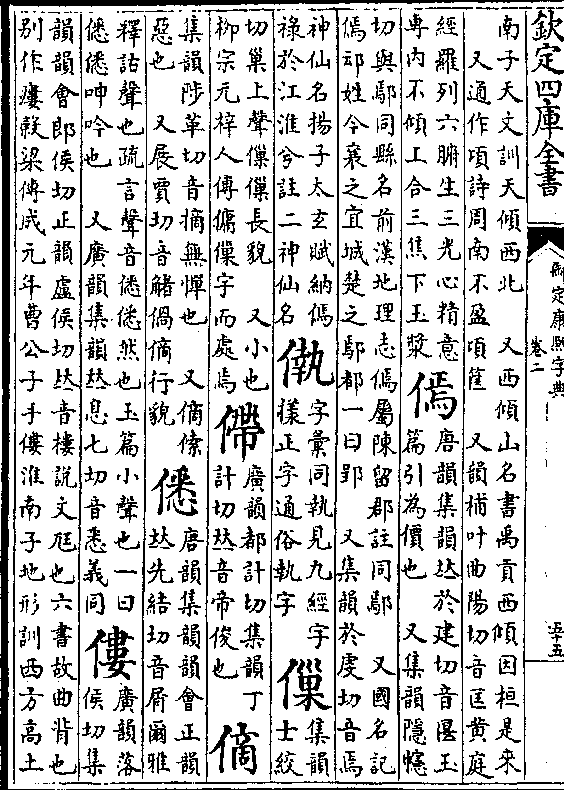 欽定四庫全書
御定康熙字典
卷二
五十五
南子天文訓天傾西北　又西傾山名書禹貢西傾因桓是來
又通作項詩周南不盈項筐　又韻補叶曲陽切音匡黃庭
經羅列六腑生三光心精意
專內不傾上合三焦下玉漿
傿
唐韻集韻𠀤於建切音堰玉
篇引為價也　又集韻隱幰
切與鄢同縣名前漢地理志傿屬陳留郡註同鄢　又國名記
傿邧姓今襄之宜城楚之鄢都一曰郢　又集韻於虔切音焉
神仙名揚子太玄賦納傿
祿於江淮兮註二神仙名
字彙同執見九經字
樣正字通俗執字
集韻
士絞
切巢上聲長貌　又小也
柳宗元梓人傳傭字而處焉
僀
廣韻都計切集韻丁
計切𠀤音帝俊也
集韻陟革切音摘無憚也　又傃
惡也　又展賈切音觰行貌
僁
唐韻集韻韻會正韻
𠀤先結切音屑爾雅
釋詁聲也疏言聲音僁僁然也玉篇小聲也一曰
僁僁呻吟也　又廣韻集韻𠀤息七切音悉義同
僂
廣韻落
侯切集
韻韻會郎侯切正韻盧侯切𠀤音樓說文尫也六書故曲脊也
別作瘻穀梁傳成元年曹公子手僂淮南子地形訓西方高土